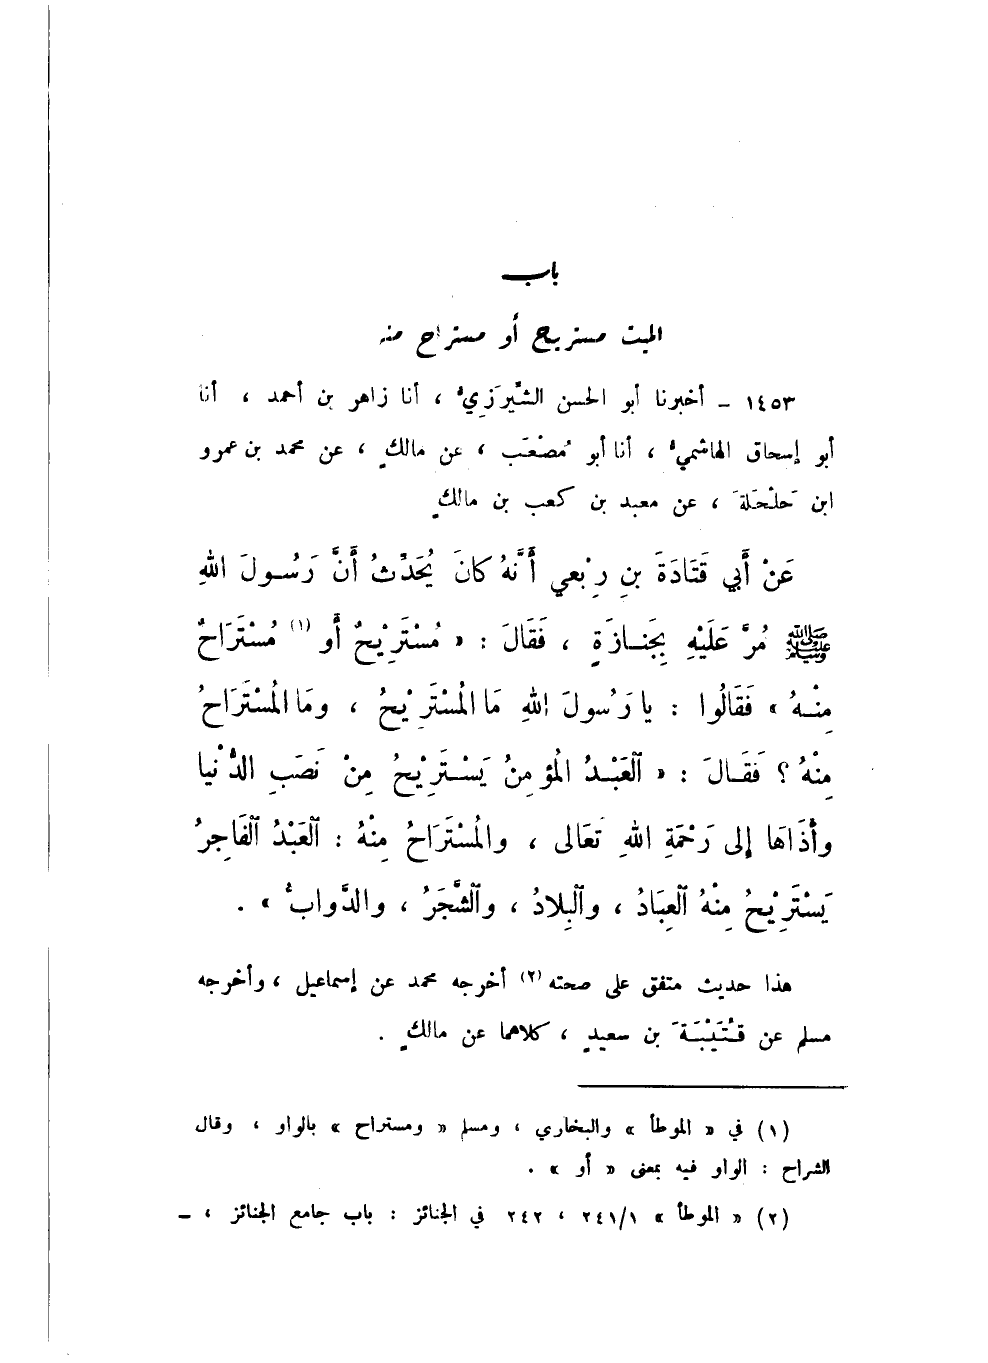 باب
الميت مستريح أو مستراح منه
١٤٥٣ – أخبرنا أبو الحسن الشِّيرَزِيُّ ، أنا زاهر بن أحمد ، أنا
أبو إسحاق الهاشميُّ ، أنا أبو مُصْعَبٍ ، عن مالكٍ ، عن محمد بن عمرو
ابن حَلْحَلَةَ ، عن معبد بن كعب بن مالكٍ
عَنْ أَبي قَتَادَةَ بنِ رِبْعي أَنَّهُ كانَ يُحَدِّثُ أَنَّ رَسُولَ اللهِ
ﷺ مُرَّ عَلَيْهِ بِجَنازَةٍ ، فَقَالَ : « مُسْتَرِيْحٌ أَو (١) مُسْتَرَاحٌ
مِنْهُ » فَقَالُوا : يا رَسُولَ اللهِ مَا المُسْتَرِيْحُ ، ومَا المُسْتَرَاحُ
مِنْهُ ؟ فَقَالَ : « ٱلعَبْدُ المُؤمِنُ يَسْتَرِيْحُ مِنْ نَصَبِ الدُّنْيا
وأَذَاهَا إلى رَحْمَةِ اللهِ تعَالى ، والمُسْتَرَاحُ مِنْهُ : ٱلعَبْدُ ٱلفَاجِرُ
يَسْتَرِيْحُ مِنْهُ ٱلعِبَادُ ، وٱلبِلادُ ، وٱلشَّجَرُ ، والدَّوابُّ » .
هذا حديث متفق على صحته (٢) أخرجه محمد عن إسماعيل ، وأخرجه
مسلم عن قُتَيْبَةَ بن سعيدٍ ، كلاهما عن مالكٍ .
(١) في « الموطأ » والبخاري ، ومسلم « ومستراح » بالواو ، وقال
الشراح : الواو فيه بمعنى « أو » .
(٢) « الموطأ » ٢٤١/١ ، ٢٤٢ في الجنائز : باب جامع الجنائز ، –